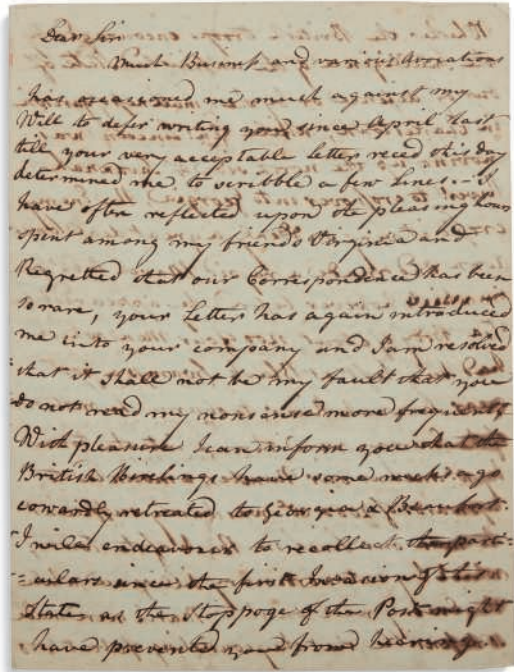 Dear Sir
Much Business and various Avocations
has occasioned me much against my
Will to defer writing you since April last
till your very acceptable letter reced this day
determined me to scribble a few Lines. I
have often reflected upon the pleasing hours
spent among my friends Virginia and
Regretted that our Correspondence has been
so rare, your Letter has again introduced
me into your company and I am resolved
that it shall not be my fault that you
do not read my nonsense more frequently
With pleasure I can inform you that the
British have some weeks ago
cowardly retreated to Georgia & Beaufort.
I will endeavour to recollect the parti
=culars since the first Invasion of this
State as the Stoppage of the Post might
have prevented you from hearing.